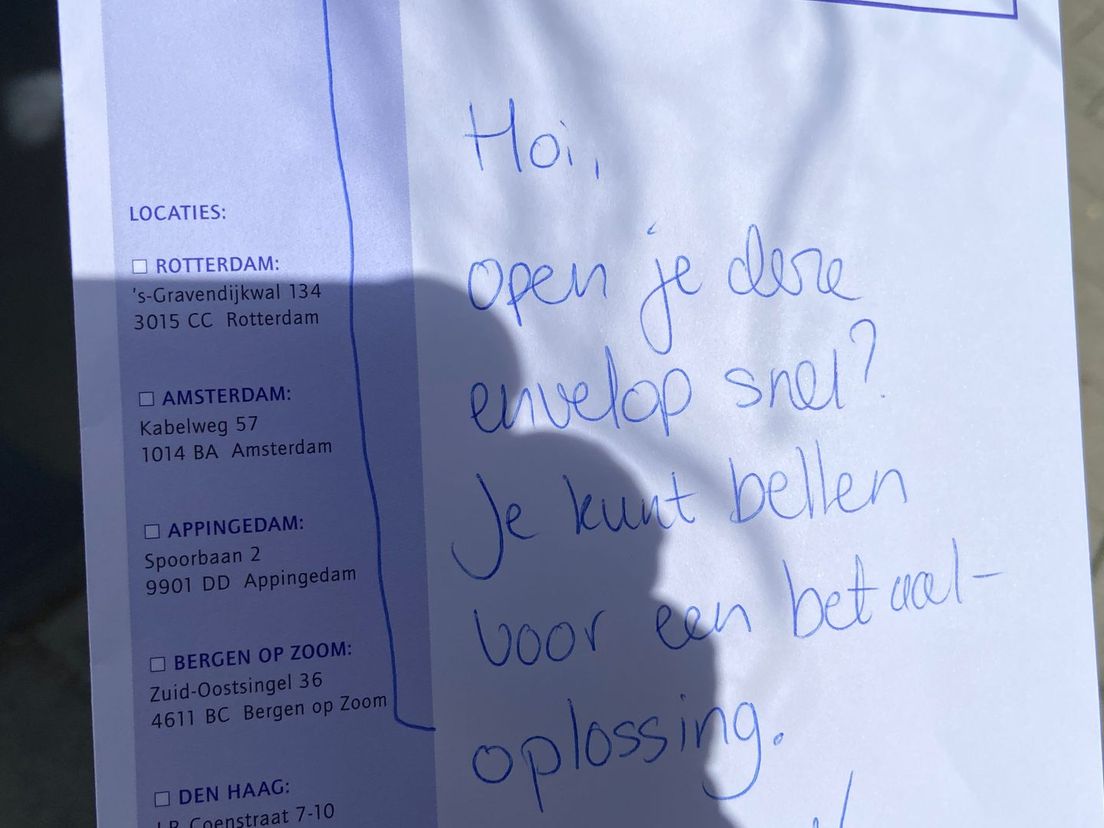 LOCATIES:
☐ ROTTERDAM:
's-Gravendijkwal 134
3015 CC Rotterdam
☐ AMSTERDAM:
Kabelweg 57
1014 BA Amsterdam
☐ APPINGEDAM:
Spoorbaan 2
9901 DD Appingedam
☐ BERGEN OP ZOOM:
Zuid-Oostsingel 36
4611 BC Bergen op Zoom
☐ DEN HAAG:
Coenstraat 7-10
Hoi,
open je deze
envelop snel?
Je kunt bellen
voor een betaal-
oplossing.